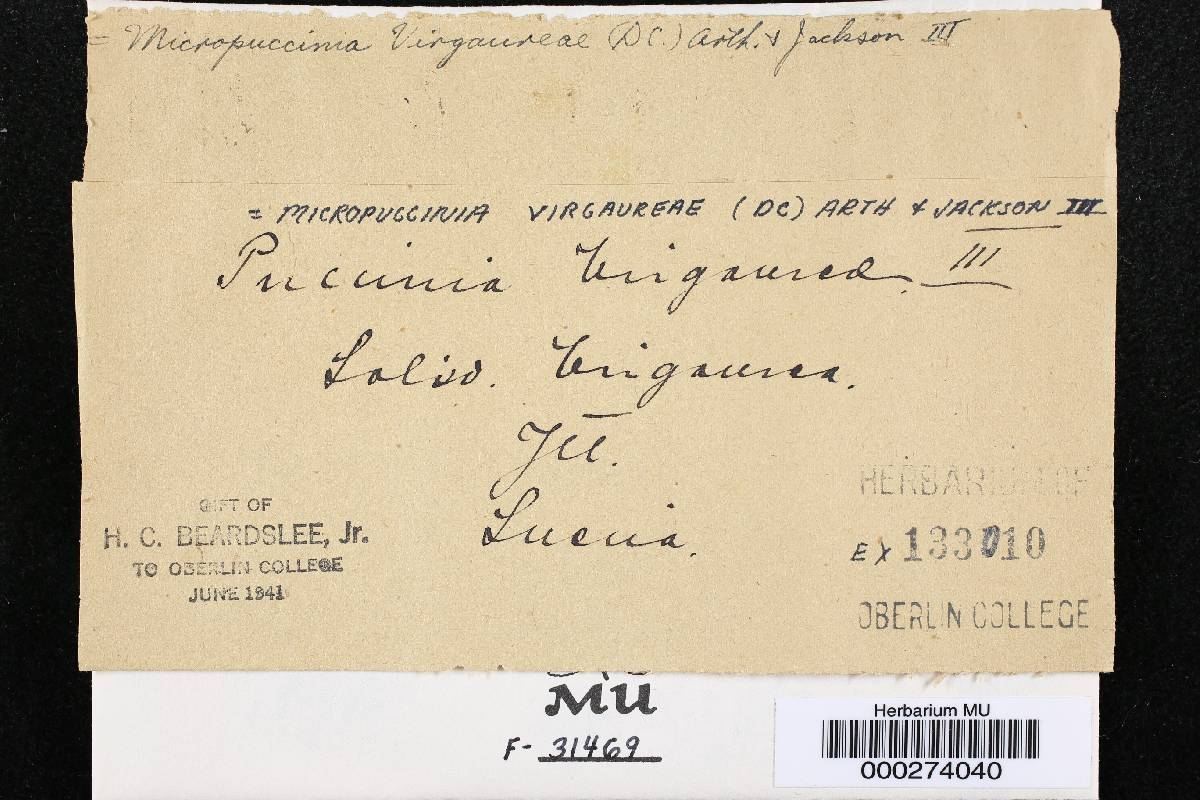 = Micropuccinia Virgaureae (DC.) Arth. & Jackson III
= MICROPUCCINIA VIRGAUREAE (DC) ARTH & JACKSON III
Puccinia Virgaureae III
Solid. Virgaurea.
GIFT OF
H. C. BEARDSLEE, Jr.
TO OBERLIN COLLEGE
JUNE 1941
Suecia.
HERBARIUM OF
EX 133010
OBERLIN COLLEGE
MU
F- 31469
Herbarium MU
000274040